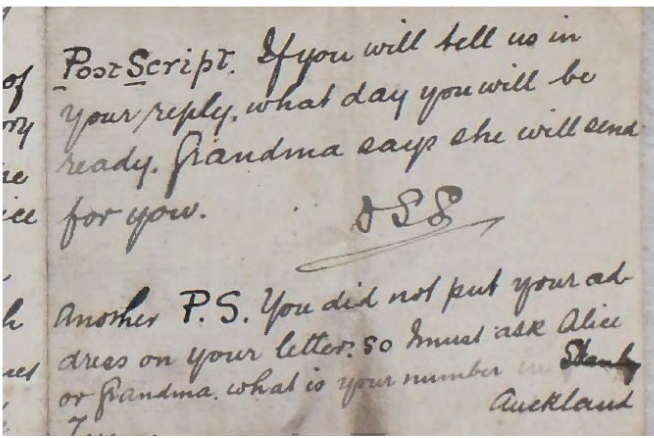 of
ory
Post Script. If you will tell us in
your reply, what day you will be
ready. Grandma says she will send
ice
for you.
Another P.S. You did not put your ad-
dress on your letter: so I must ask Alice
or Grandma. what is your number in
Auckland